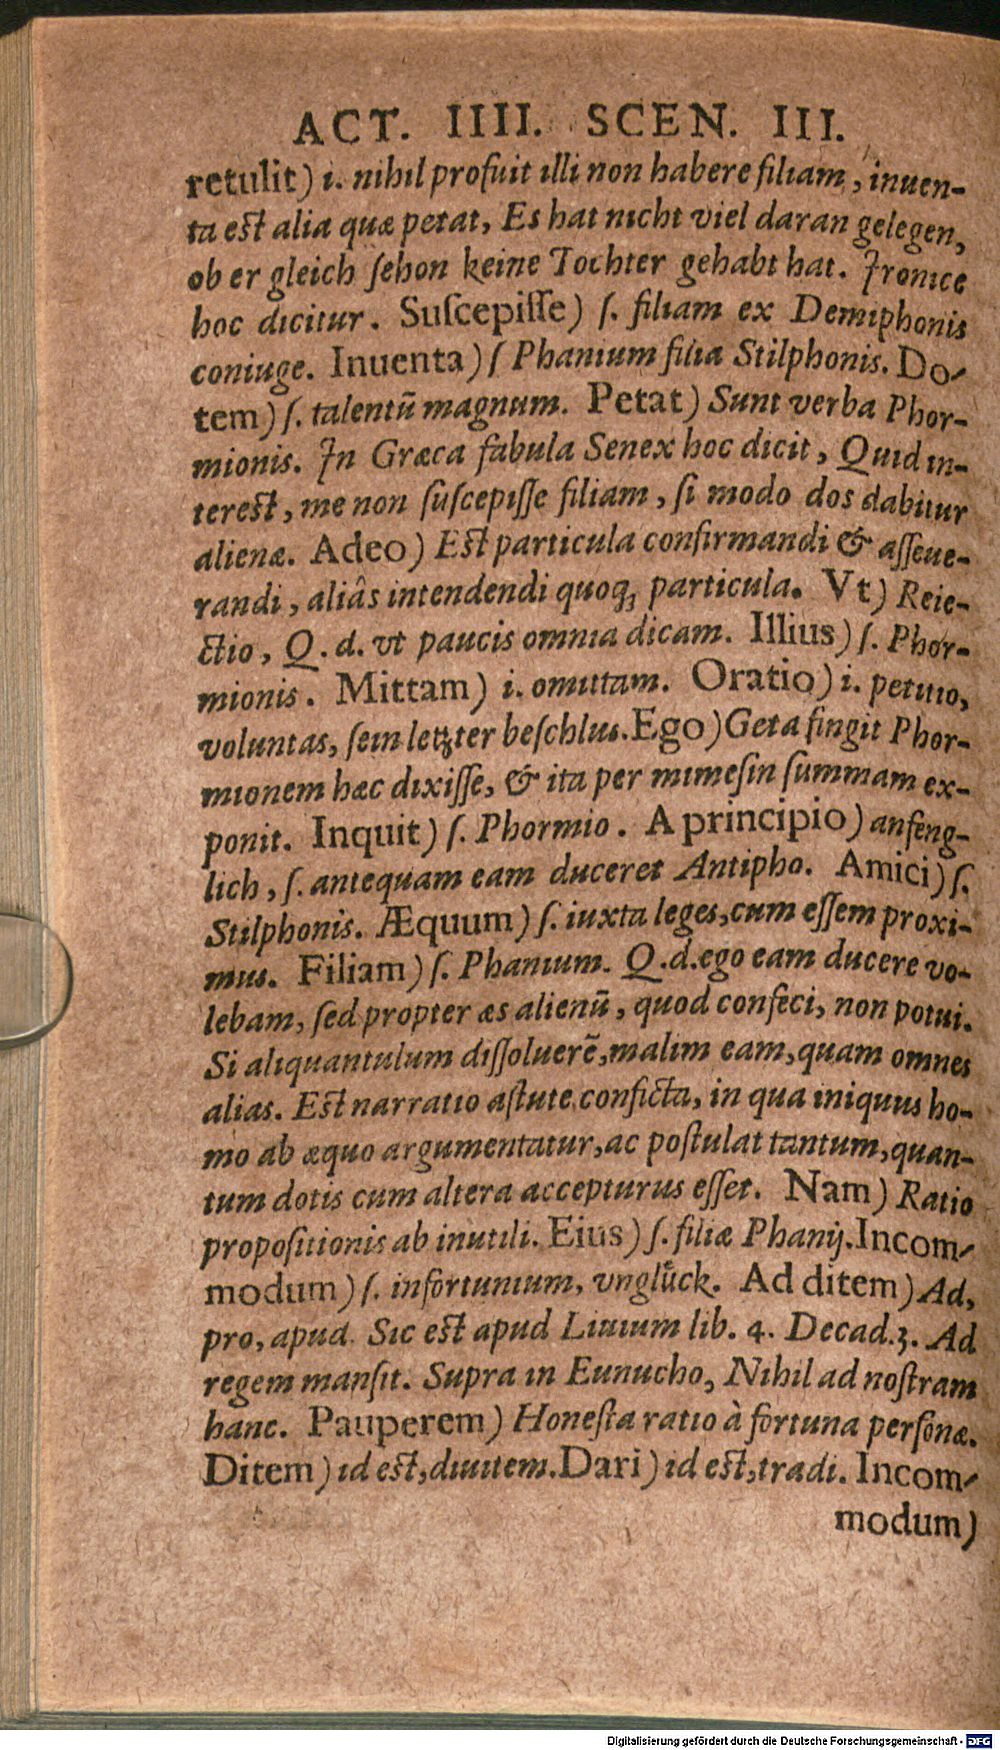 ACT. IIII. SCEN. III.
retulit) i. nihil profuit illi non habere filiam, inuen-
ta est alia quæ petat, Es hat nicht viel daran gelegen,
ob er gleich sehon keine Tochter gehabt hat. Ironice
hoc dicitur. Suscepisse) s. filiam ex Demiphonis
coniuge. Inuenta) s Phanium filia Stilphonis. Do-
tem) s. talentū magnum. Petat) Sunt verba Phor-
mionis. In Græca fabula Senex hoc dicit, Quid in-
terest, me non suscepisse filiam, si modo dos dabitur
alienæ. Adeo) Est particula confirmandi & asseue-
randi, aliâs intendendi quoq; particula. Vt) Reie-
ctio, Q. d. vt paucis omnia dicam. Illius) s. Phor-
mionis. Mittam) i. omittam. Oratio) i. petitio,
voluntas, sein letzter beschlus. Ego) Geta fingit Phor-
mionem hæc dixisse, & ita per mimesin summam ex-
ponit. Inquit) s. Phormio. A principio) anfeng-
lich, s. antequam eam duceret Antipho. Amici) s.
Stilphonis. Æquum) s. iuxta leges, cum essem proxi-
mus. Filiam) s. Phanium. Q. d. ego eam ducere vo-
lebam, sed propter æs alienū, quod confeci, non potui.
Si aliquantulum dissoluerē, malim eam, quam omnes
alias. Est narratio astute conficta, in qua iniquus ho-
mo ab æquo argumentatur, ac postulat tantum, quan-
tum dotis cum altera accepturus esset. Nam) Ratio
propositionis ab inutili. Eius) s. filiæ Phanij. Incom-
modum) s. infortunium, vnglůck. Ad ditem) Ad,
pro, apud. Sic est apud Liuium lib. 4. Decad. 3. Ad
regem mansit. Supra in Eunucho, Nihil ad nostram
hanc. Pauperem) Honesta ratio à fortuna personæ.
Ditem) id est, diuitem. Dari) id est, tradi. Incom-
modum)
Digitalisierung gefördert durch die Deutsche Forschungsgemeinschaft - DFG